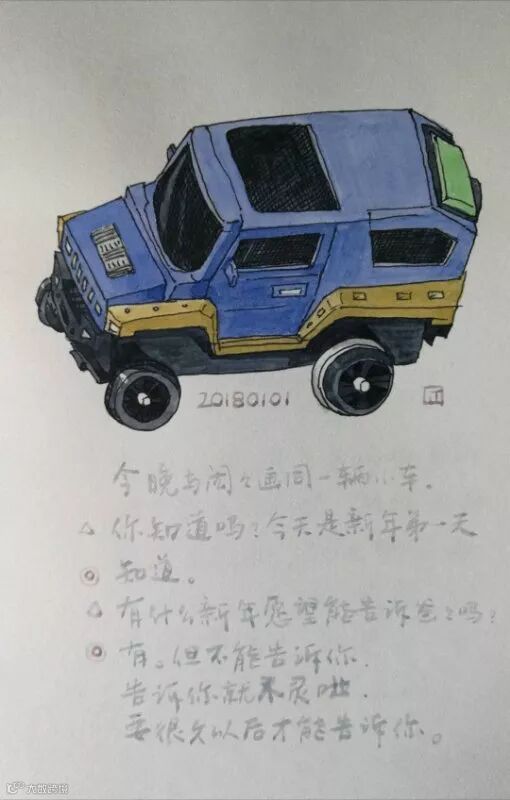 20180101
今晚与闳々画同一辆小车。
△ 你知道吗?今天是新年第一天
⊙ 知道。
△ 有什么新年愿望能告诉爸々吗?
⊙ 有。但不能告诉你.
告诉你就不灵啦.
要很久以后才能告诉你。